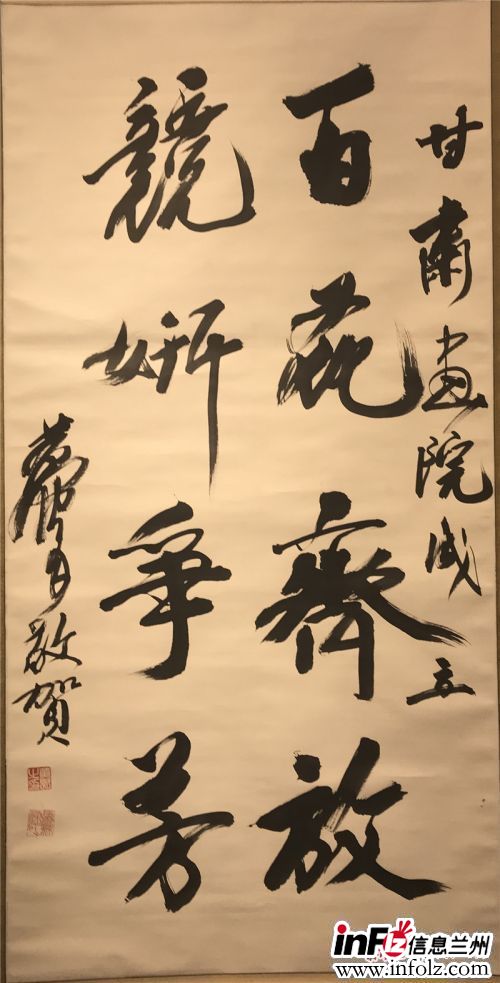 甘肅画院成立
百花齊放
競妍爭芳
敬賀
inFlz信息兰州
www.infolz.com